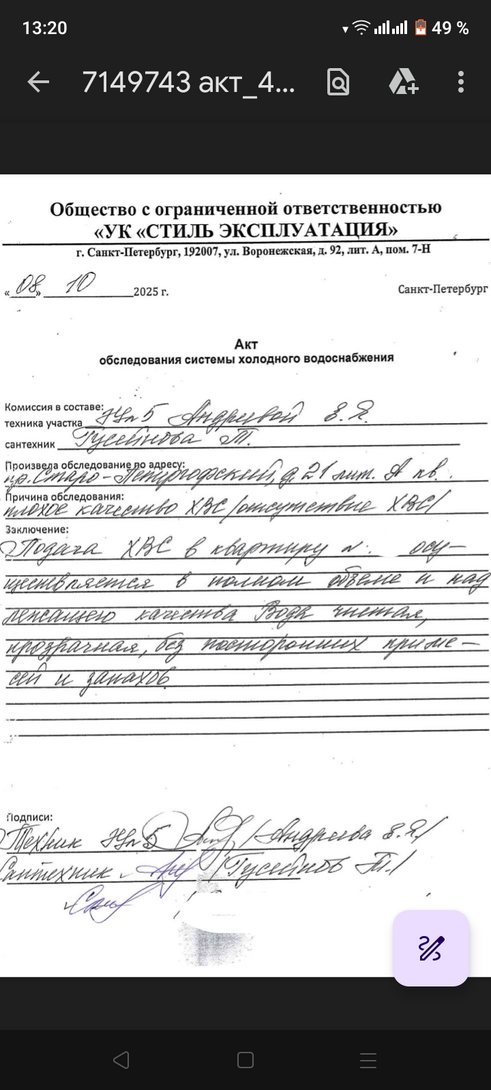 13:20
49 %
7149743 акт_4...
Общество с ограниченной ответственностью
«УК «СТИЛЬ ЭКСПЛУАТАЦИЯ»
г. Санкт-Петербург, 192007, ул. Воронежская, д. 92, лит. А, пом. 7-Н
«08» 10 2025 г. Санкт-Петербург
Акт
обследования системы холодного водоснабжения
Комиссия в составе:
техника участка №5 Андреевой Е.Я.
сантехник Гусейнова Т.
Произвела обследование по адресу:
пр. Старо-Петергофский, д. 21 лит. А кв.
Причина обследования:
плохое качество ХВС /отсутствие ХВС/
Заключение:
Подача ХВС в квартиру №. осу-
ществляется в полном объеме и над
лежащего качества Вода чистая,
прозрачная, без посторонних приме-
сей и запахов.
Подписи:
Техник №5 /Андреева Е.Я./
Сантехник /Гусейнов Т./